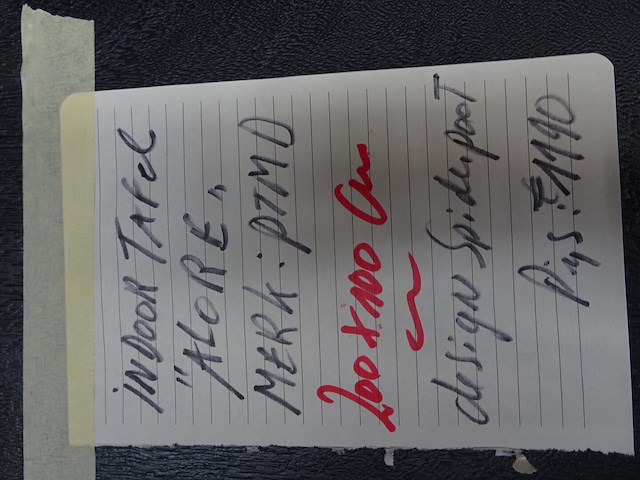 iNDOOR TAFEL
"ALORE"
MERK: PTMD
200 x 100 Cm
design Spiderpoot
Prijs: € 1190